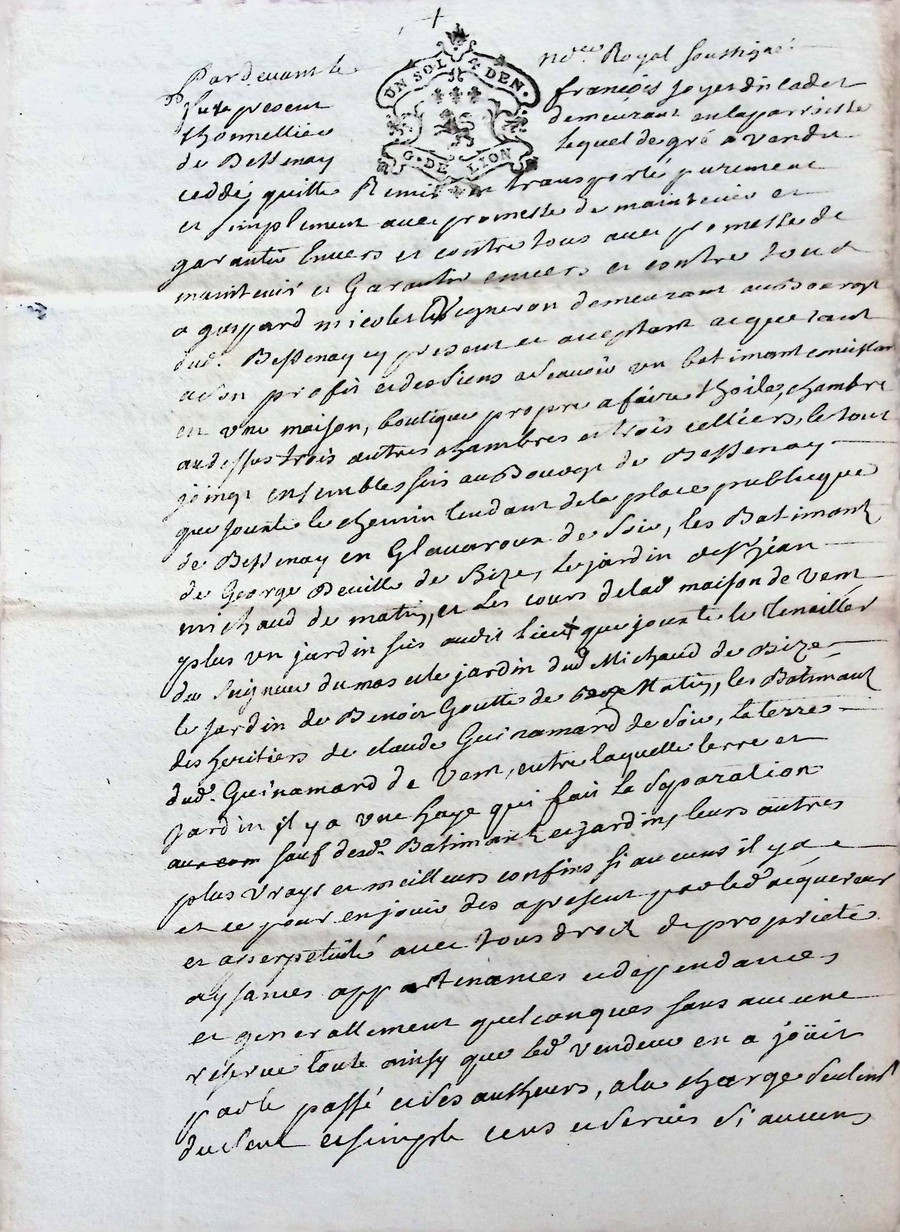 Pardevant le nore. Royal soussigné
UN SOL 4 DEN.
G. DE LION
fut present françois Joyerdin cadet
thonnellier demeurant en la parroisse
de Bessenay lequel de gré a vendu
cedde, quitte Remis et transporté purement
et simplement avec promesse de maintenir et
garantir Envers et contre tous avec promesse de
maintenir et Garantir envers et contre tous
a gaspard nicolas Vigneron demeurant au Bourg
dud. Bessenay cy present et aceptant acquerant
a son profit et des siens a scavoir un batimant consistant
en une maison, boutique propre a faire thoiles, chambre
au dessus trois autres chambres et trois celliers, le tout
joinct ensembles sis au Bourg de Bessenay
que jouxte le chemin tendant de la place publicque
de Bessenay en Glavaroux de soir, les Batimant
de George Deville de Bize, le jardin de sr. jean
michaud de matin, et les cours de la maison de vent
plus un jardin sis audit lieu que jouxte le tenailler
du seigneur du mas et le jardin dud. Michaud de Bize
le jardin de Benoit Goutte de Matin, les Batimant
des heritiers de claude Guinamard de Soir, la terre
dud. Guinamard de vent, entre laquelle terre et
jardin il y a une haye qui fait la Separation
sauf desd. Batimant et jardin, leurs autres
plus vrays et meilleurs confins si aucuns il y a
et ce pour en jouir des apresent par led. acquereur
et a perpetuité avec tous droit de proprieté
aysances appartenances et dependances
et generallement quelconques sans aucune
reserve toute ainsy que led. vendeur en a joüit
par le passé et ses autheurs, a la charge seulemt
du cens et simple cens et servis si aucuns